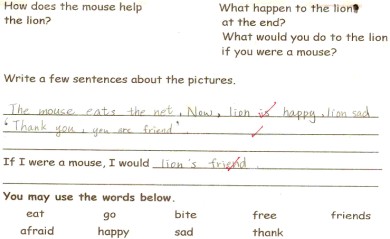 How does the mouse help What happen to the lion
the lion? at the end?
What would you do to the lion
if you were a mouse?
Write a few sentences about the pictures.
The mouse eats the net, Now, lion is happy, lion sad
"Thank you, you are friend".
If I were a mouse, I would lion's friend.
You may use the words below.
eat go bite free friends
afraid happy sad thank